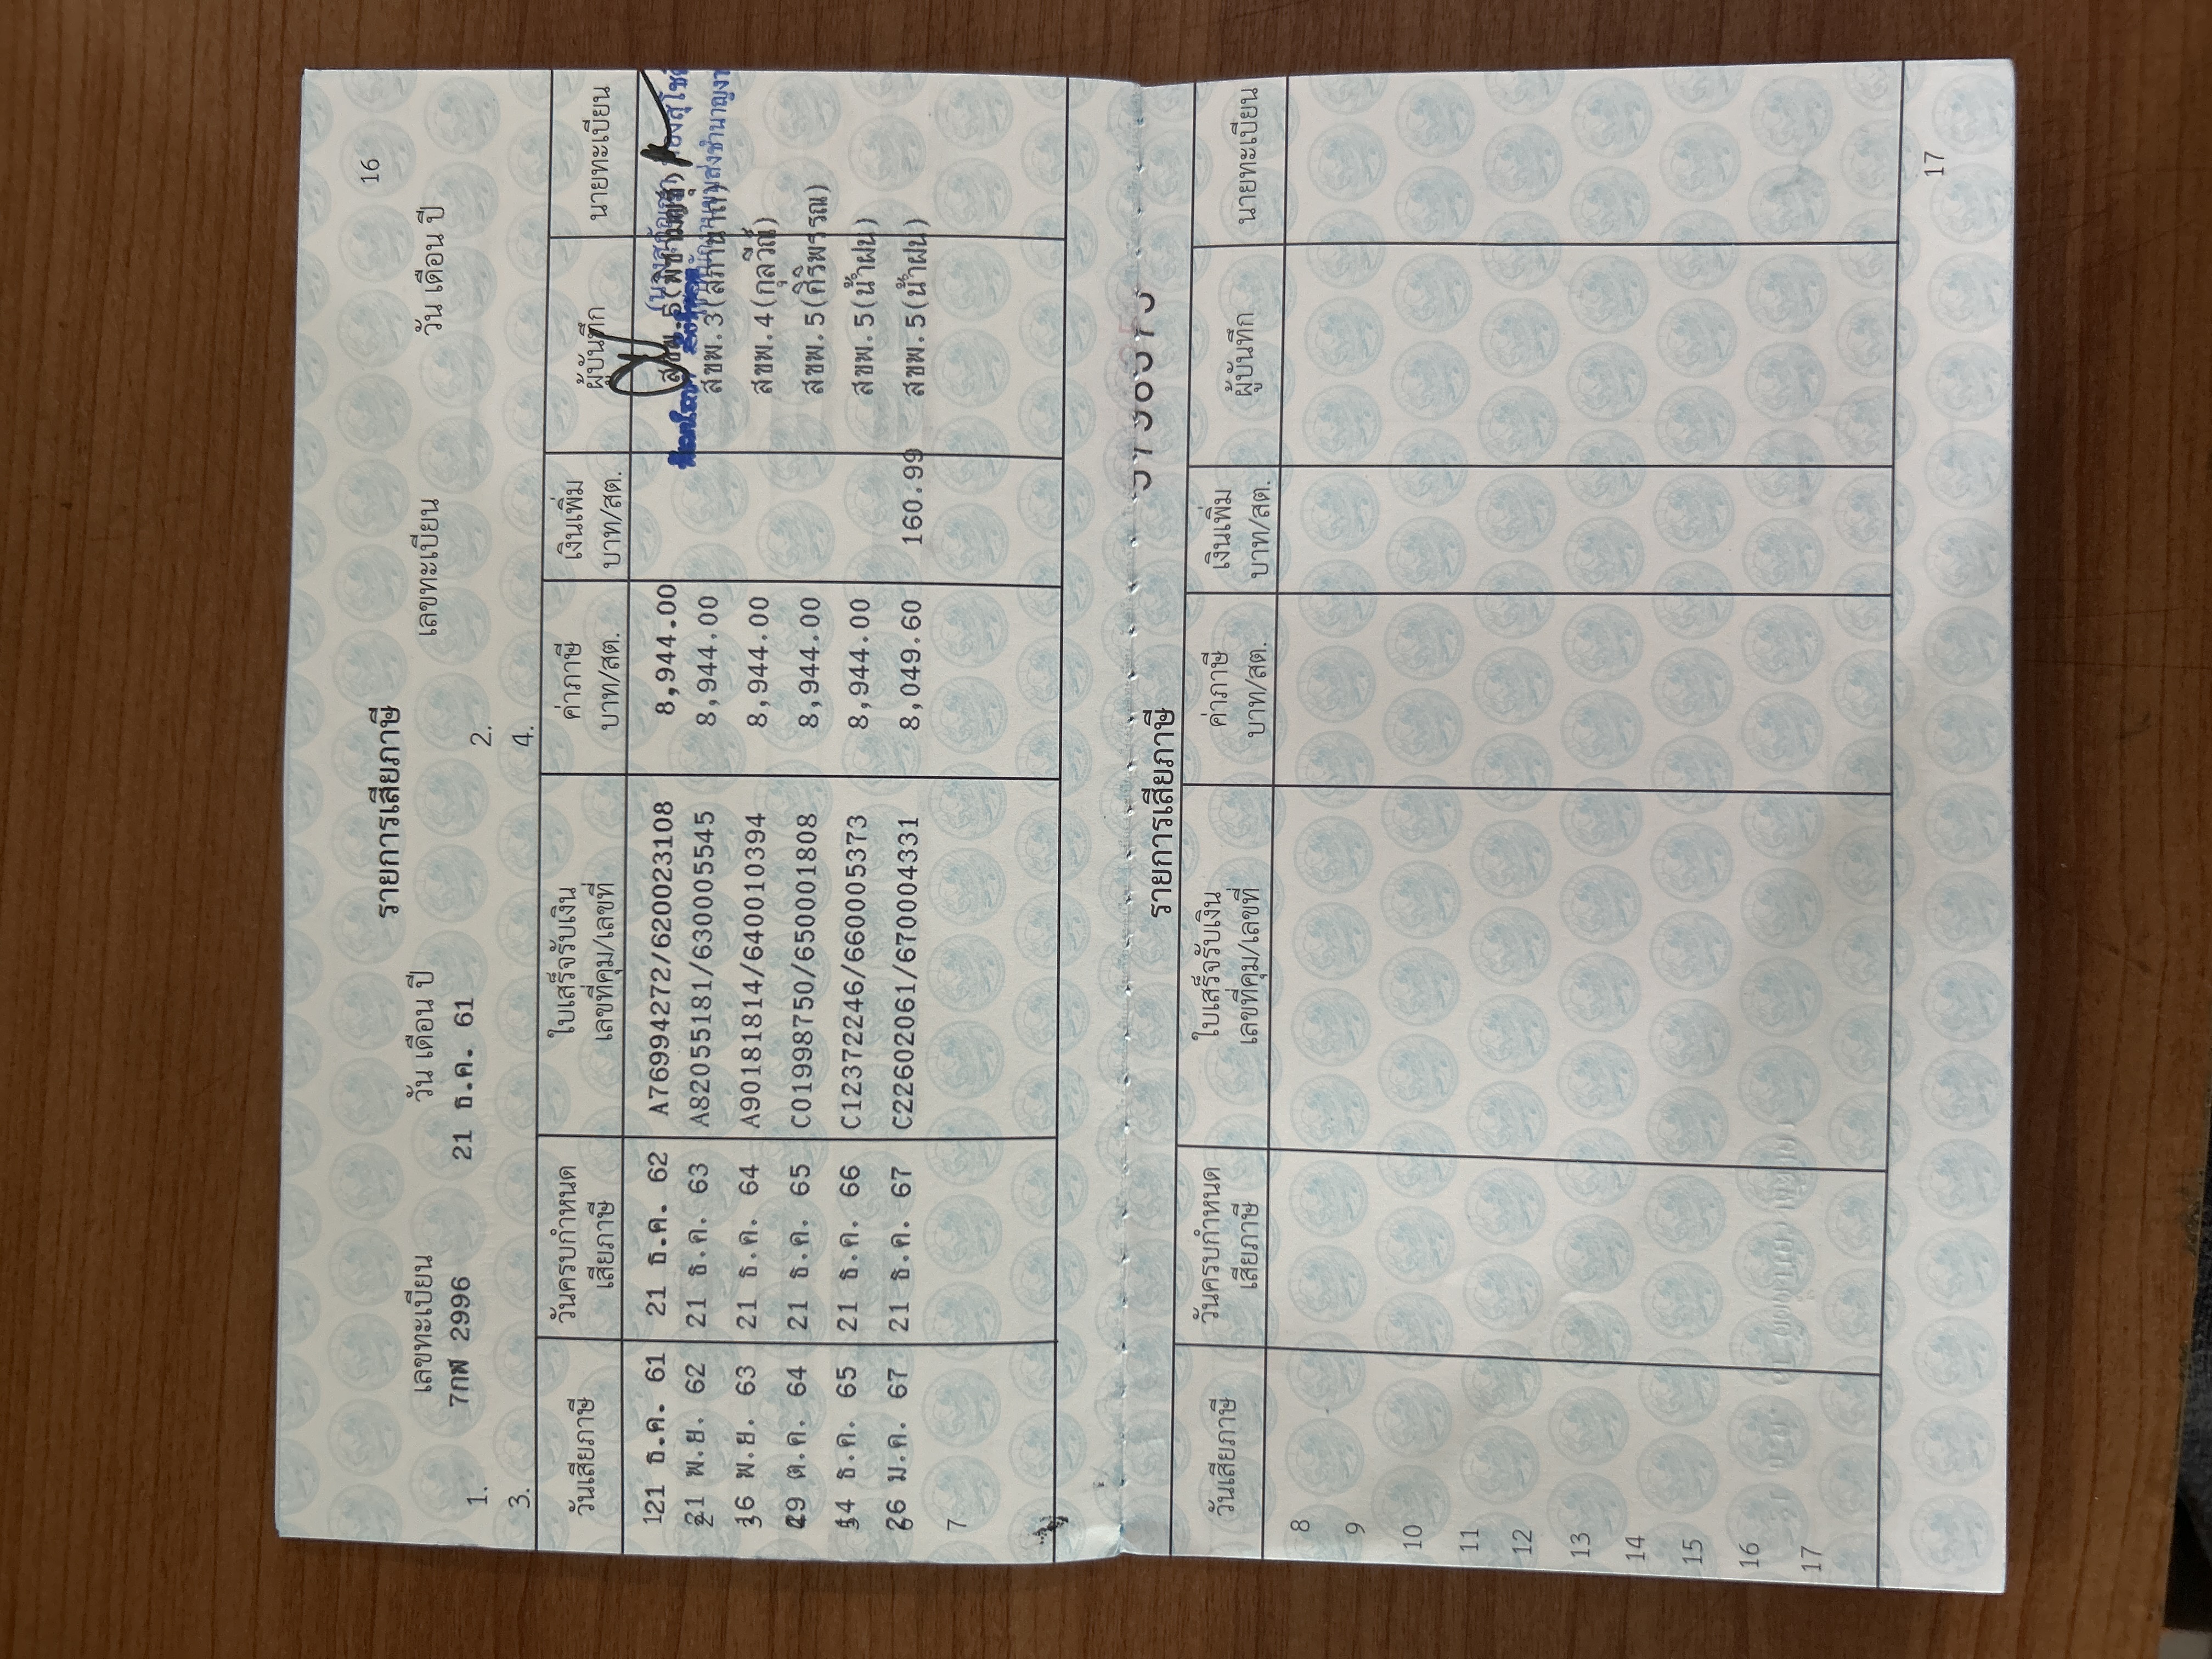 16
รายการเสียภาษี
เลขทะเบียน วัน เดือน ปี เลขทะเบียน วัน เดือน ปี
1. 7กฬ 2996 21 ธ.ค. 61 2.
3. 4.
วันเสียภาษี วันครบกำหนดเสียภาษี ใบเสร็จรับเงิน เลขที่คุม/เลขที่ ค่าภาษี บาท/สต. เงินเพิ่ม บาท/สต. ผู้บันทึก นายทะเบียน
1 21 ธ.ค. 61 21 ธ.ค. 62 A76994272/620023108 8,944.00 สขพ.5
21 พ.ย. 62 21 ธ.ค. 63 A82055181/630005545 8,944.00 สขพ.3
16 พ.ย. 63 21 ธ.ค. 64 A90181814/640010394 8,944.00 สขพ.4(กุลวีณ์)
29 ต.ค. 64 21 ธ.ค. 65 C01998750/650001808 8,944.00 สขพ.5(ศิริพรรณ)
14 ธ.ค. 65 21 ธ.ค. 66 C12372246/660005373 8,944.00 สขพ.5(น้ำฝน)
26 ม.ค. 67 21 ธ.ค. 67 C22602061/670004331 8,049.60 160.99 สขพ.5(น้ำฝน)
7
รายการเสียภาษี
วันเสียภาษี วันครบกำหนดเสียภาษี ใบเสร็จรับเงิน เลขที่คุม/เลขที่ ค่าภาษี บาท/สต. เงินเพิ่ม บาท/สต. ผู้บันทึก นายทะเบียน
8
9
10
11
12
13
14
15
16
17
17